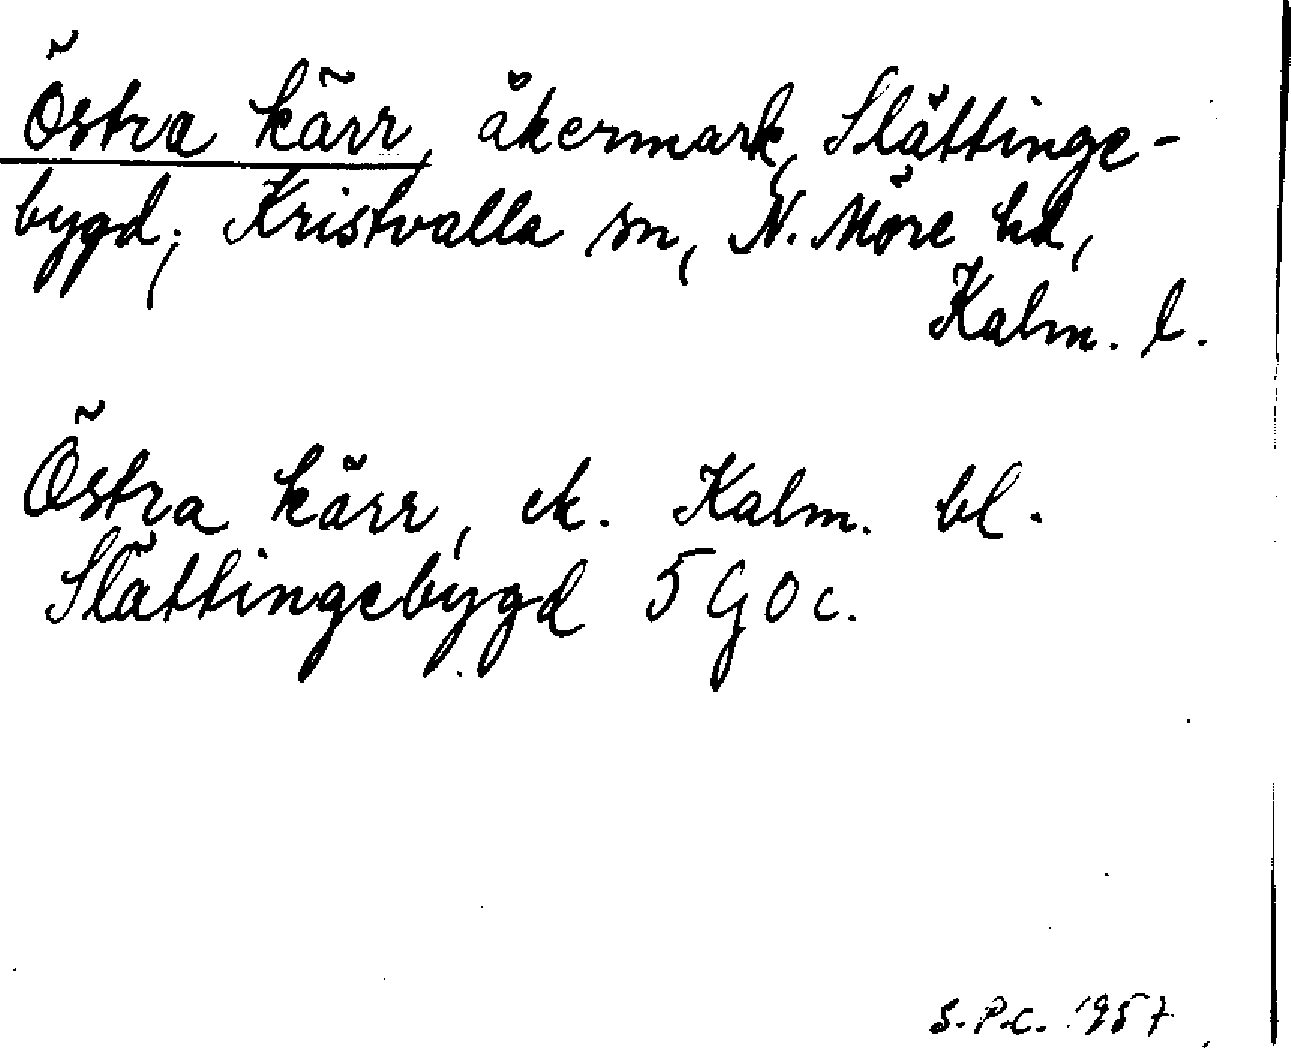 Östra kärr, åkermark, Slättinge-
bygd; Kristvalla sn, N. Möre hd,
Kalm. l.
Östra kärr, ek. Kalm. bl.
Slättingebygd 5 G O c.
S.P.C. 1957